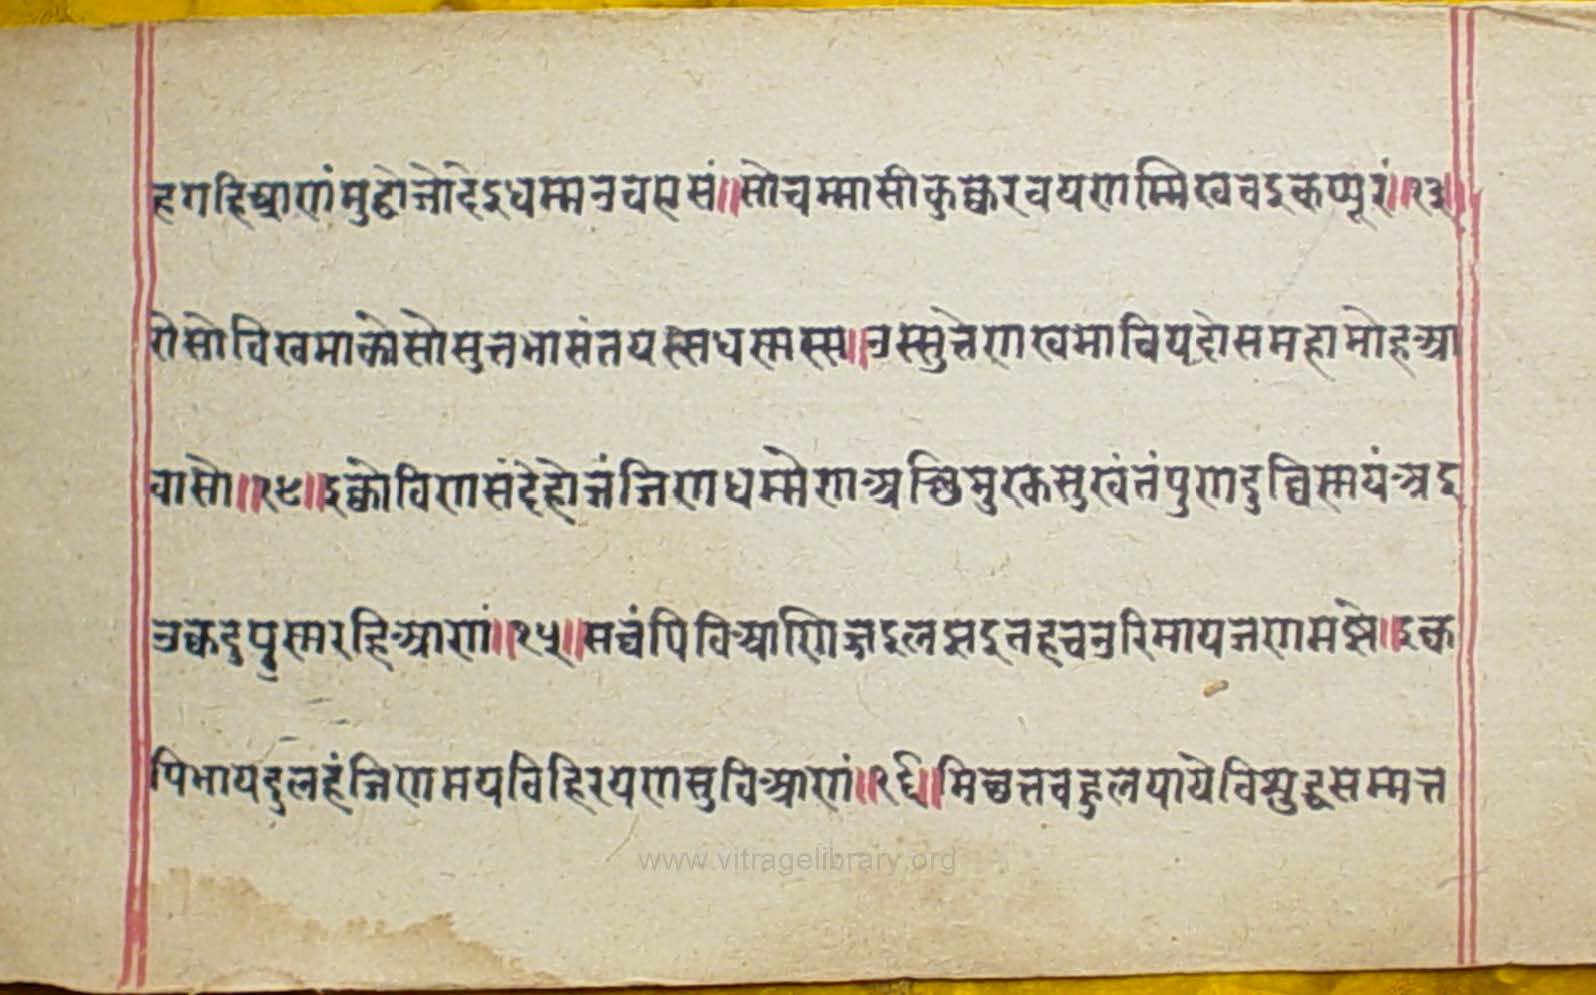 हगहिआणं मुद्धो जो देइ धम्मउवएसं॥ सो चम्मासी कुक्कर वयणम्मि खवइ कप्पूरं॥१३॥
रोसो वि खमाकोसो सुत्त भासंत यस्स धम्मस्स॥ उस्सुत्तेण खमा विय दोस महामोह आ
वासो॥१४॥ इक्को वि ण संदेहो जं जिणधम्मेण अत्थि मुरक सुखं तं पुण दुव्विस्मयं अइ
उक्कट्ठ पुस्म रहिआणं॥१५॥ सव्वं पि विआणिज्जइ लझइ तह चउरिमाय जणमझे॥ इक्क
पि भाय दुलहं जिणमय विहिरयण सुविआणं॥१६॥ मिच्छत्त वहुलयाये विशुद्ध सम्मत्त
www.vitragelibrary.org